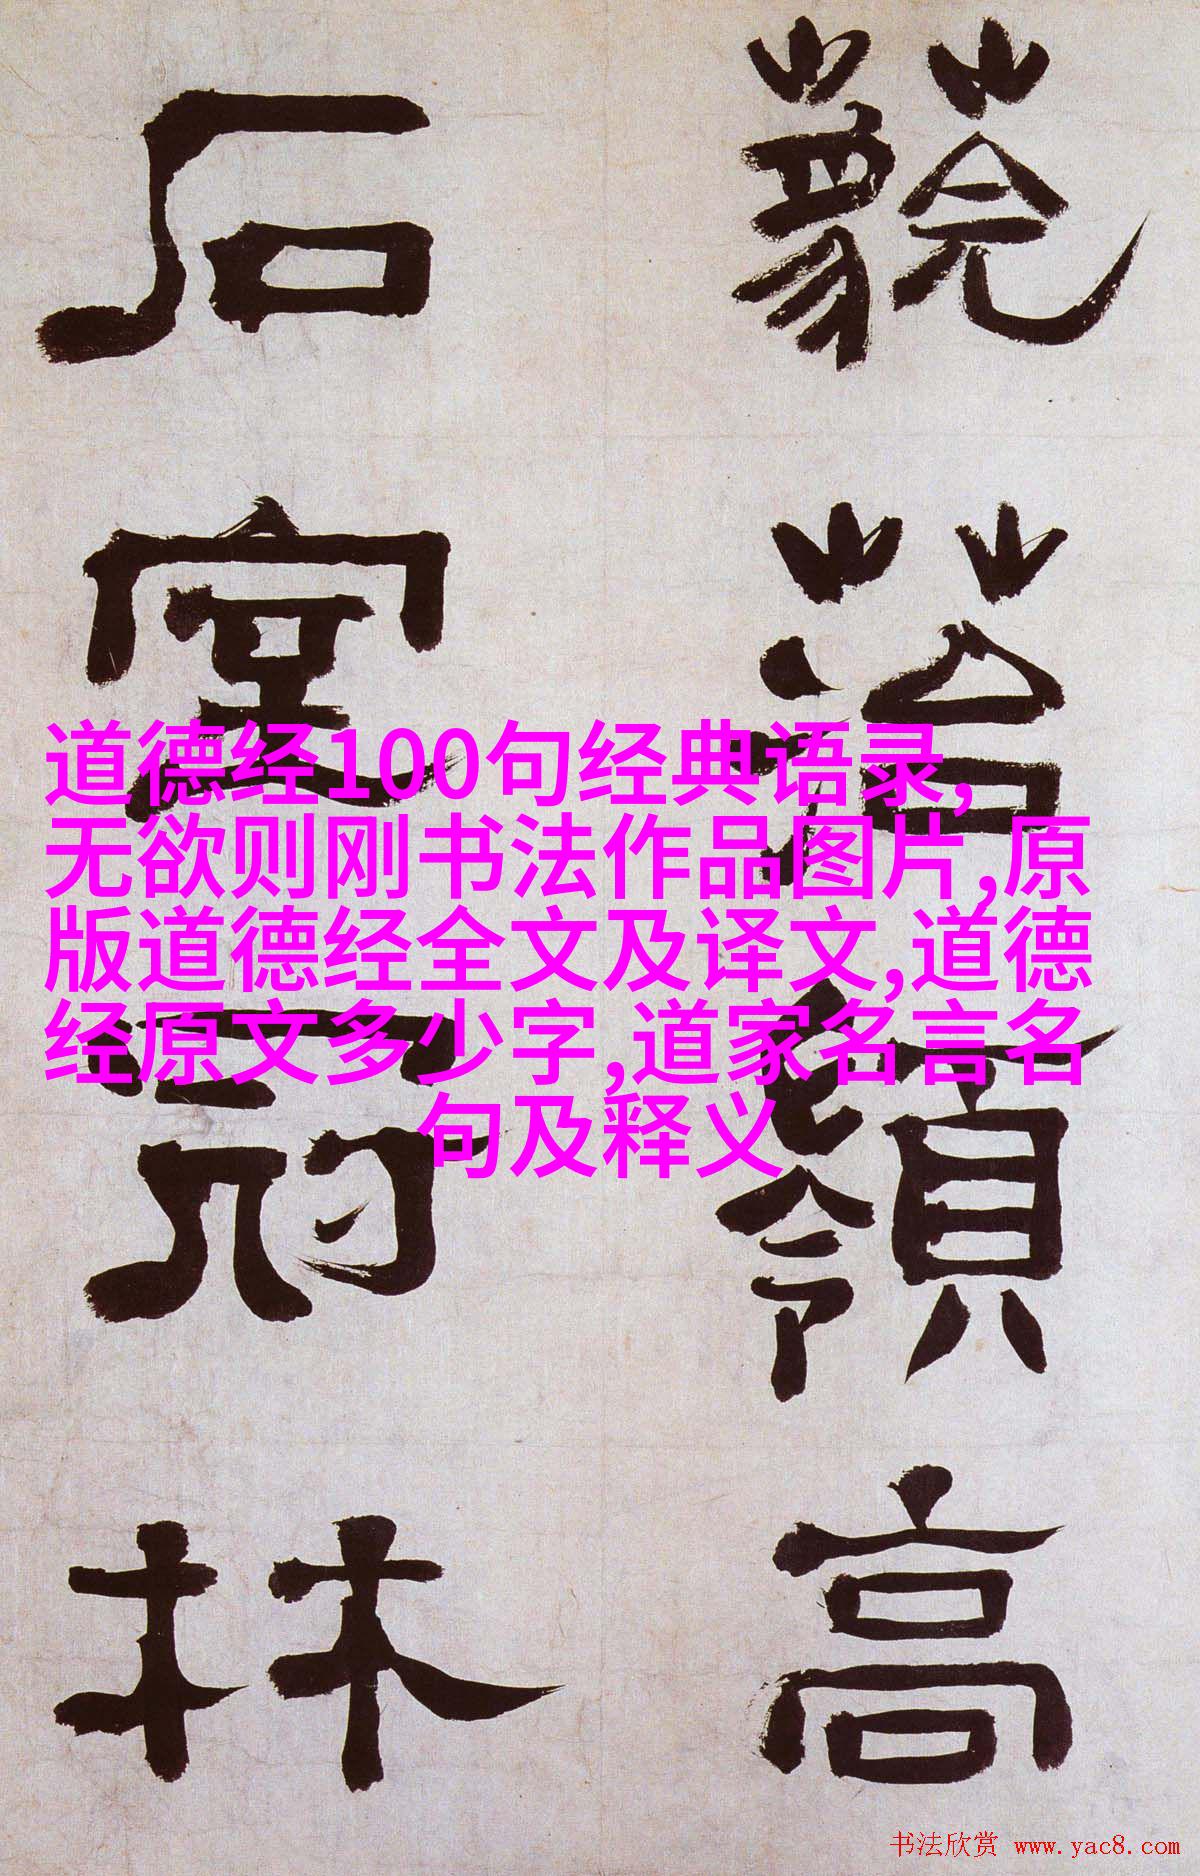 菭嶺高
石室冠林
道德经100句经典语录,
无欲则刚书法作品图片,原
版道德经全文及译文,道德
经原文多少字,道家名言名
句及释义
书法欣赏 www.yac8.com